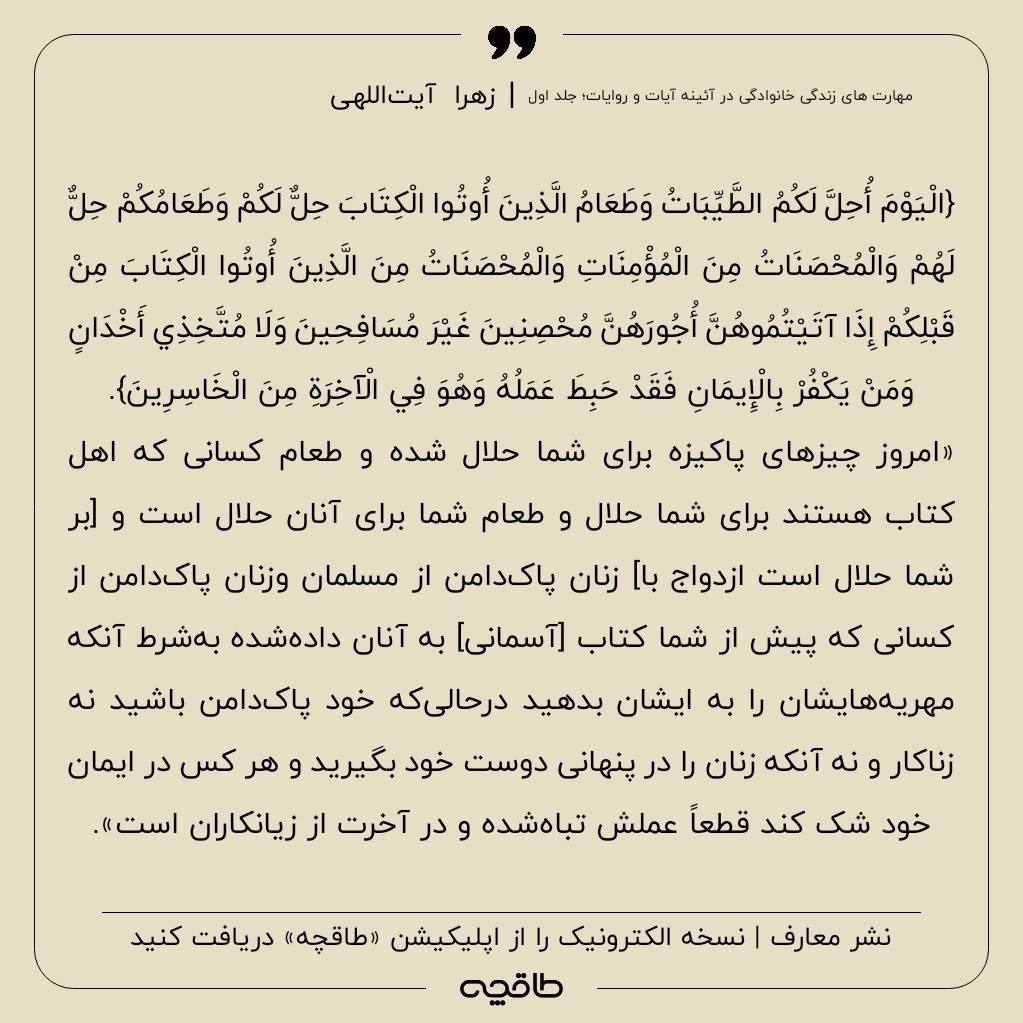 ❞
مهارت های زندگی خانوادگی در آئینه آیات و روایات؛ جلد اول | زهرا آیت‌اللهی
{الْيَوْمَ أُحِلَّ لَكُمُ الطَّيِّبَاتُ وَطَعَامُ الَّذِينَ أُوتُوا الْكِتَابَ حِلٌّ لَكُمْ وَطَعَامُكُمْ حِلٌّ
لَهُمْ وَالْمُحْصَنَاتُ مِنَ الْمُؤْمِنَاتِ وَالْمُحْصَنَاتُ مِنَ الَّذِينَ أُوتُوا الْكِتَابَ مِنْ
قَبْلِكُمْ إِذَا آتَيْتُمُوهُنَّ أُجُورَهُنَّ مُحْصِنِينَ غَيْرَ مُسَافِحِينَ وَلَا مُتَّخِذِي أَخْدَانٍ
وَمَنْ يَكْفُرْ بِالْإِيمَانِ فَقَدْ حَبِطَ عَمَلُهُ وَهُوَ فِي الْآخِرَةِ مِنَ الْخَاسِرِينَ}.
«امروز چیزهای پاکیزه برای شما حلال شده و طعام کسانی که اهل
کتاب هستند برای شما حلال و طعام شما برای آنان حلال است و [بر
شما حلال است ازدواج با] زنان پاک‌دامن از مسلمان وزنان پاک‌دامن از
کسانی که پیش از شما کتاب [آسمانی] به آنان داده‌شده به‌شرط آنکه
مهریه‌هایشان را به ایشان بدهید درحالی‌که خود پاک‌دامن باشید نه
زناکار و نه آنکه زنان را در پنهانی دوست خود بگیرید و هر کس در ایمان
خود شک کند قطعاً عملش تباه‌شده و در آخرت از زیانکاران است».
نشر معارف | نسخه الکترونیک را از اپلیکیشن «طاقچه» دریافت کنید
طاقچه